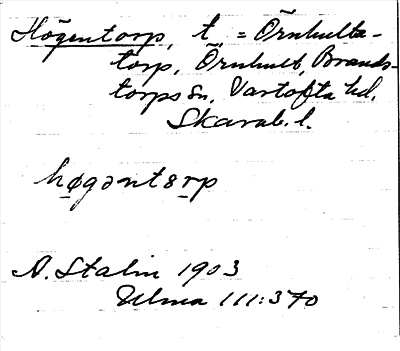 Högentorp, t = Örnhulta-
torp, Örnhult, Brands-
torps sn, Vartofta hd,
Skarab. l.
høgəntɞrp
A. Stalin 1903
Ulma 111:370